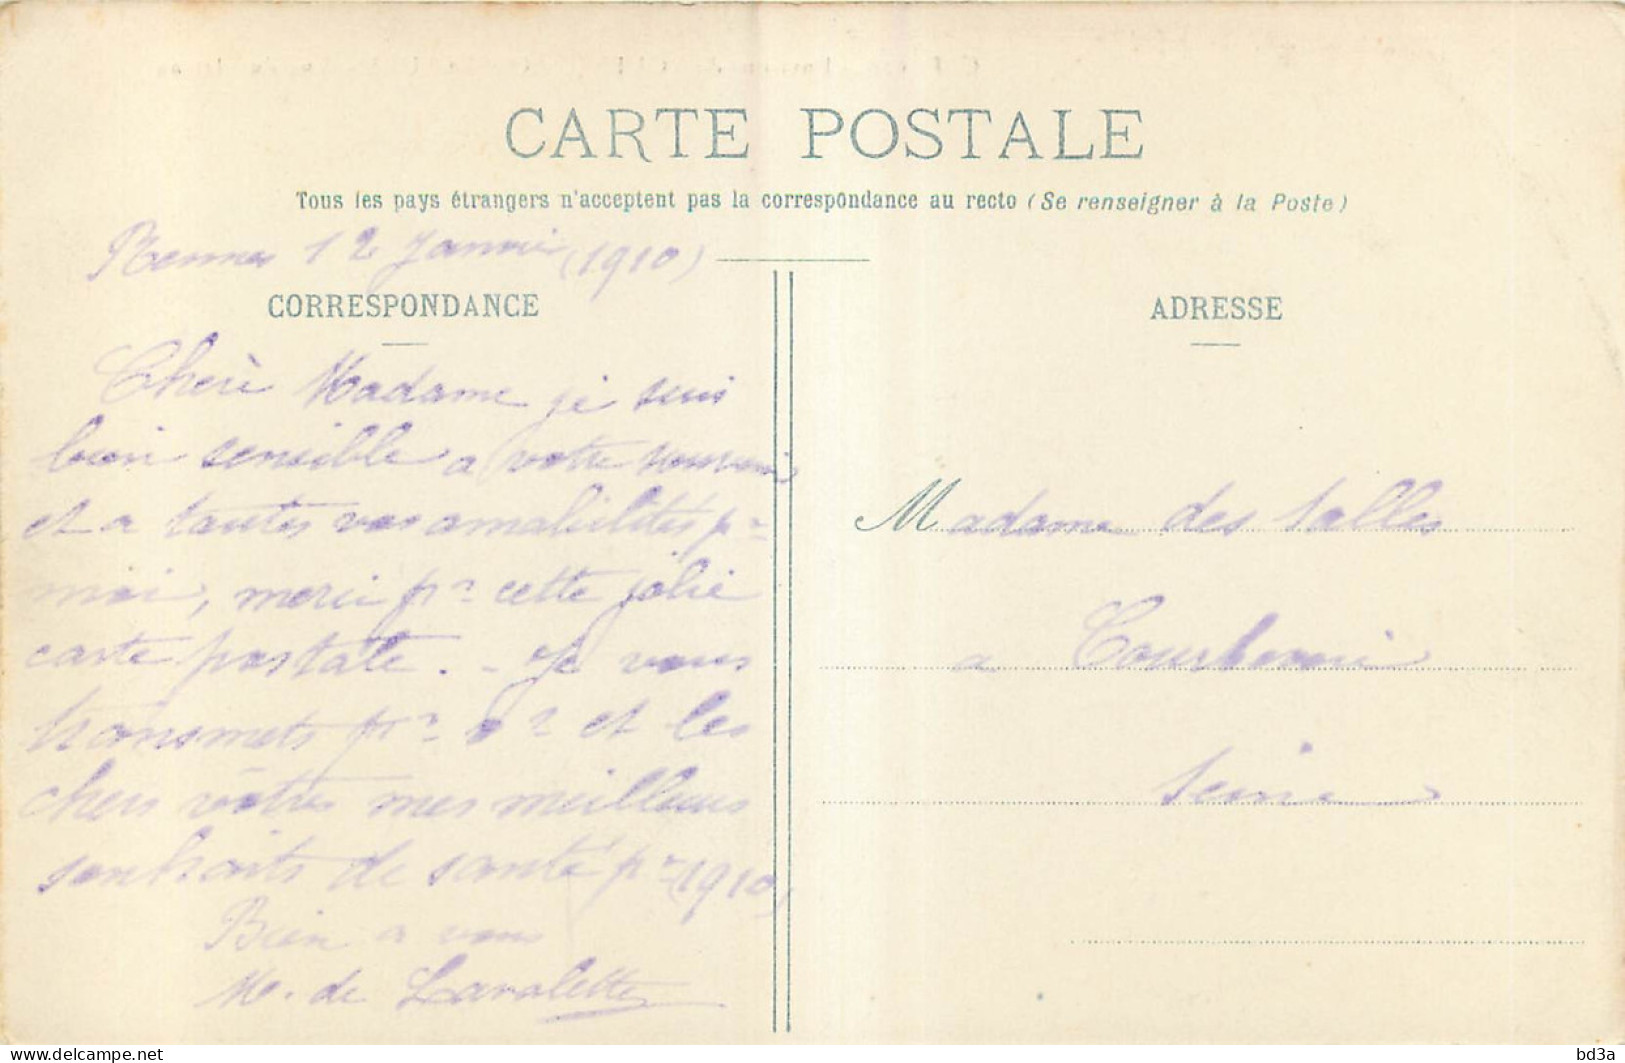 CARTE POSTALE
Tous les pays étrangers n'acceptent pas la correspondance au recto (Se renseigner à la Poste)
Rennes 12 Janvier (1910)
CORRESPONDANCE
Chère Madame je suis
bien sensible a votre souvenir
et a toutes vos amabilités pr
moi, merci pr cette jolie
carte postale. - Je vous
transmets pr et les
chers vôtres mes meilleurs
souhaits de santé pr (1910)
Bien a vous
M. de Lavalette
ADRESSE
Madame des Salles
a Courbevoie
Seine
delcampe.net
bd3a